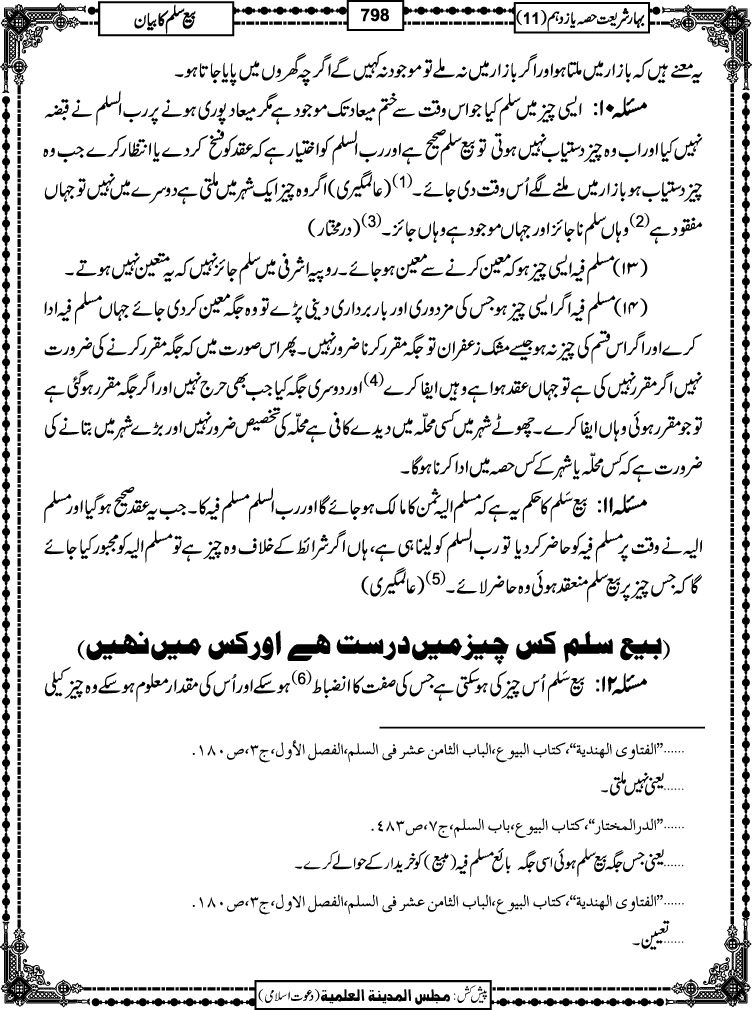 بہارِ شریعت حصہ یازدہم (11)
798
بیع سلم کا بیان
یہ معنے ہیں کہ بازار میں ملتا ہو اور اگر بازار میں نہ ملے تو موجود نہ کہیں گے اگرچہ گھروں میں پایا جاتا ہو۔
مسئلہ ۱۰: ایسی چیز میں سلم کیا جو اس وقت سے ختم میعاد تک موجود ہے مگر میعاد پوری ہونے پر رب السلم نے قبضہ
نہیں کیا اور اب وہ چیز دستیاب نہیں ہوتی تو بیع سلم صحیح ہے اور رب السلم کو اختیار ہے کہ عقد کو فسخ کر دے یا انتظار کرے جب وہ
چیز دستیاب ہو بازار میں ملنے لگے اُس وقت دی جائے۔(1) (عالمگیری) اگر وہ چیز ایک شہر میں ملتی ہے دوسرے میں نہیں تو جہاں
مفقود ہے(2) وہاں سلم ناجائز اور جہاں موجود ہے وہاں جائز۔(3) (درمختار)
(۱۳) مسلم فیہ ایسی چیز ہو کہ معین کرنے سے معین ہو جائے۔ روپیہ اشرفی میں سلم جائز نہیں کہ یہ متعین نہیں ہوتے۔
(۱۴) مسلم فیہ اگر ایسی چیز ہو جس کی مزدوری اور بار برداری دینی پڑے تو وہ جگہ معین کر دی جائے جہاں مسلم فیہ ادا
کرے اور اگر اس قسم کی چیز نہ ہو جیسے مشک زعفران تو جگہ مقرر کرنا ضرور نہیں۔ پھر اس صورت میں کہ جگہ مقرر کرنے کی ضرورت
نہیں اگر مقرر نہیں کی ہے تو جہاں عقد ہوا ہے وہیں ایفا کرے(4) اور دوسری جگہ کیا جب بھی حرج نہیں اور اگر جگہ مقرر ہو گئی ہے
تو جو مقرر ہوئی وہاں ایفا کرے۔ چھوٹے شہر میں کسی محلّہ میں دیدے کافی ہے محلّہ کی تخصیص ضرور نہیں اور بڑے شہر میں بتانے کی
ضرورت ہے کہ کس محلّہ یا شہر کے کس حصہ میں ادا کرنا ہوگا۔
مسئلہ ۱۱: بیع سَلم کا حکم یہ ہے کہ مسلم الیہ ثمن کا مالک ہو جائے گا اور رب السلم مسلم فیہ کا۔ جب یہ عقد صحیح ہو گیا اور مسلم
الیہ نے وقت پر مسلم فیہ کو حاضر کر دیا تو رب السلم کو لینا ہی ہے، ہاں اگر شرائط کے خلاف وہ چیز ہے تو مسلم الیہ کو مجبور کیا جائے
گا کہ جس چیز پر بیع سلم منعقد ہوئی وہ حاضر لائے۔(5) (عالمگیری)
(بیع سلم کس چیز میں درست ھے اور کس میں نھیں)
مسئلہ ۱۲: بیع سَلم اُس چیز کی ہو سکتی ہے جس کی صفت کا انضباط(6) ہو سکے اور اُس کی مقدار معلوم ہو سکے وہ چیز کیلی
......"الفتاوی الهندیة"، کتاب البیوع، الباب الثامن عشر فی السلم، الفصل الأول، ج۳، ص۱۸۰.
......یعنی نہیں ملتی۔
......"الدرالمختار"، کتاب البیوع، باب السلم، ج۷، ص۴۸۳.
......یعنی جس جگہ بیع سلم ہوئی اسی جگہ بائع مسلم فیہ (مبیع) کو خریدار کے حوالے کرے۔
......"الفتاوی الهندیة"، کتاب البیوع، الباب الثامن عشر فی السلم، الفصل الاول، ج۳، ص۱۸۰.
......تعیین۔
پیش کش: مجلس المدینۃ العلمیۃ (دعوت اسلامی)